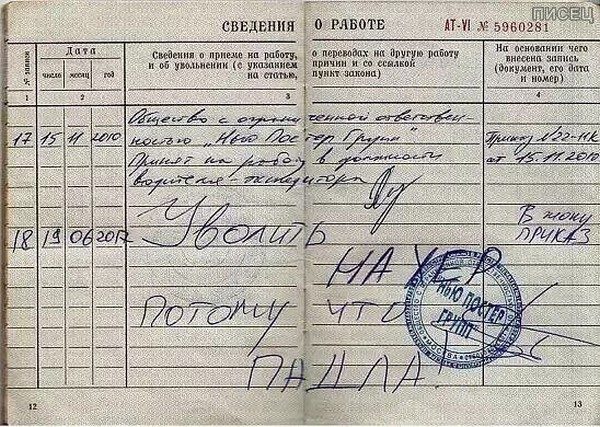 ПИСЕЦ
СВЕДЕНИЯ О РАБОТЕ
АТ-VI № 5960281
№ записи
Дата
число месяц год
Сведения о приеме на работу, о переводах на другую работу
и об увольнении (с указанием причин и со ссылкой
на статью, пункт закона)
На основании чего
внесена запись
(документ, его дата
и номер)
1 2 3 4
Общество с ограниченной ответствен-
17 15 11 2010 ностью „Нью Постер Групп“ Приказ №22-НК
Принят на работу в должности от 15.11.2010
водителя-экспедитора
18 19 06 2012 Уволить В жопу
ПРИКАЗ
НАХЕР
ПОТОМУ ЧТО
ПАДЛА!
НЬЮ ПОСТЕР
ГРУПП
МОСКВА
12 13